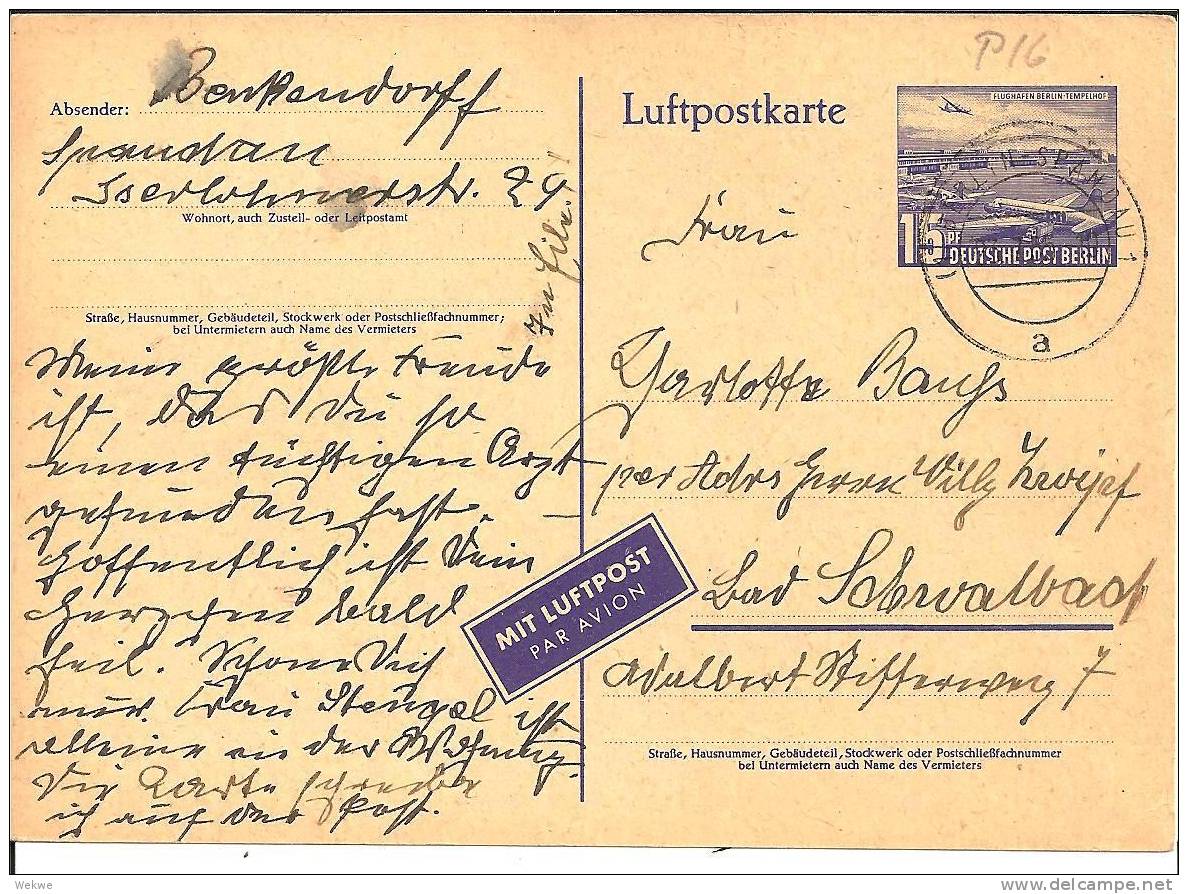 P16
Absender: Benkendorff
Spandau
Iserlohnerstr. 29
Wohnort, auch Zustell- oder Leitpostamt
Straße, Hausnummer, Gebäudeteil, Stockwerk oder Postschließfachnummer;
bei Untermietern auch Name des Vermieters
In Eile!
Meine größte Freude
ist, das Du so
einen tüchtigen Arzt
gefunden hast.
Hoffentlich ist Dein
Herzchen bald
heil. Schone Dich
nur. Frau Stengel ist
alleine in der Wohnung.
Die Karte schreibe
ich auf der Post.
MIT LUFTPOST
PAR AVION
Luftpostkarte
FLUGHAFEN BERLIN-TEMPELHOF
15 PF
DEUTSCHE POST BERLIN
BERLIN SPANDAU 1
a
Frau
Charlotte
per Adrs Herrn Willy
Bad Schwalbach
Adalbert Stifterweg 7
Straße, Hausnummer, Gebäudeteil, Stockwerk oder Postschließfachnummer
bei Untermietern auch Name des Vermieters
Wekwe
delcampe.net